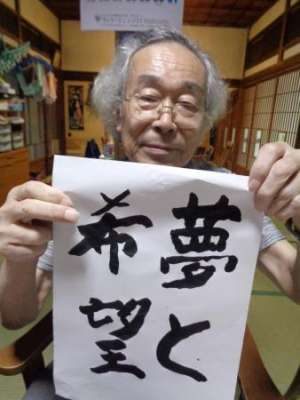 夢と
希望